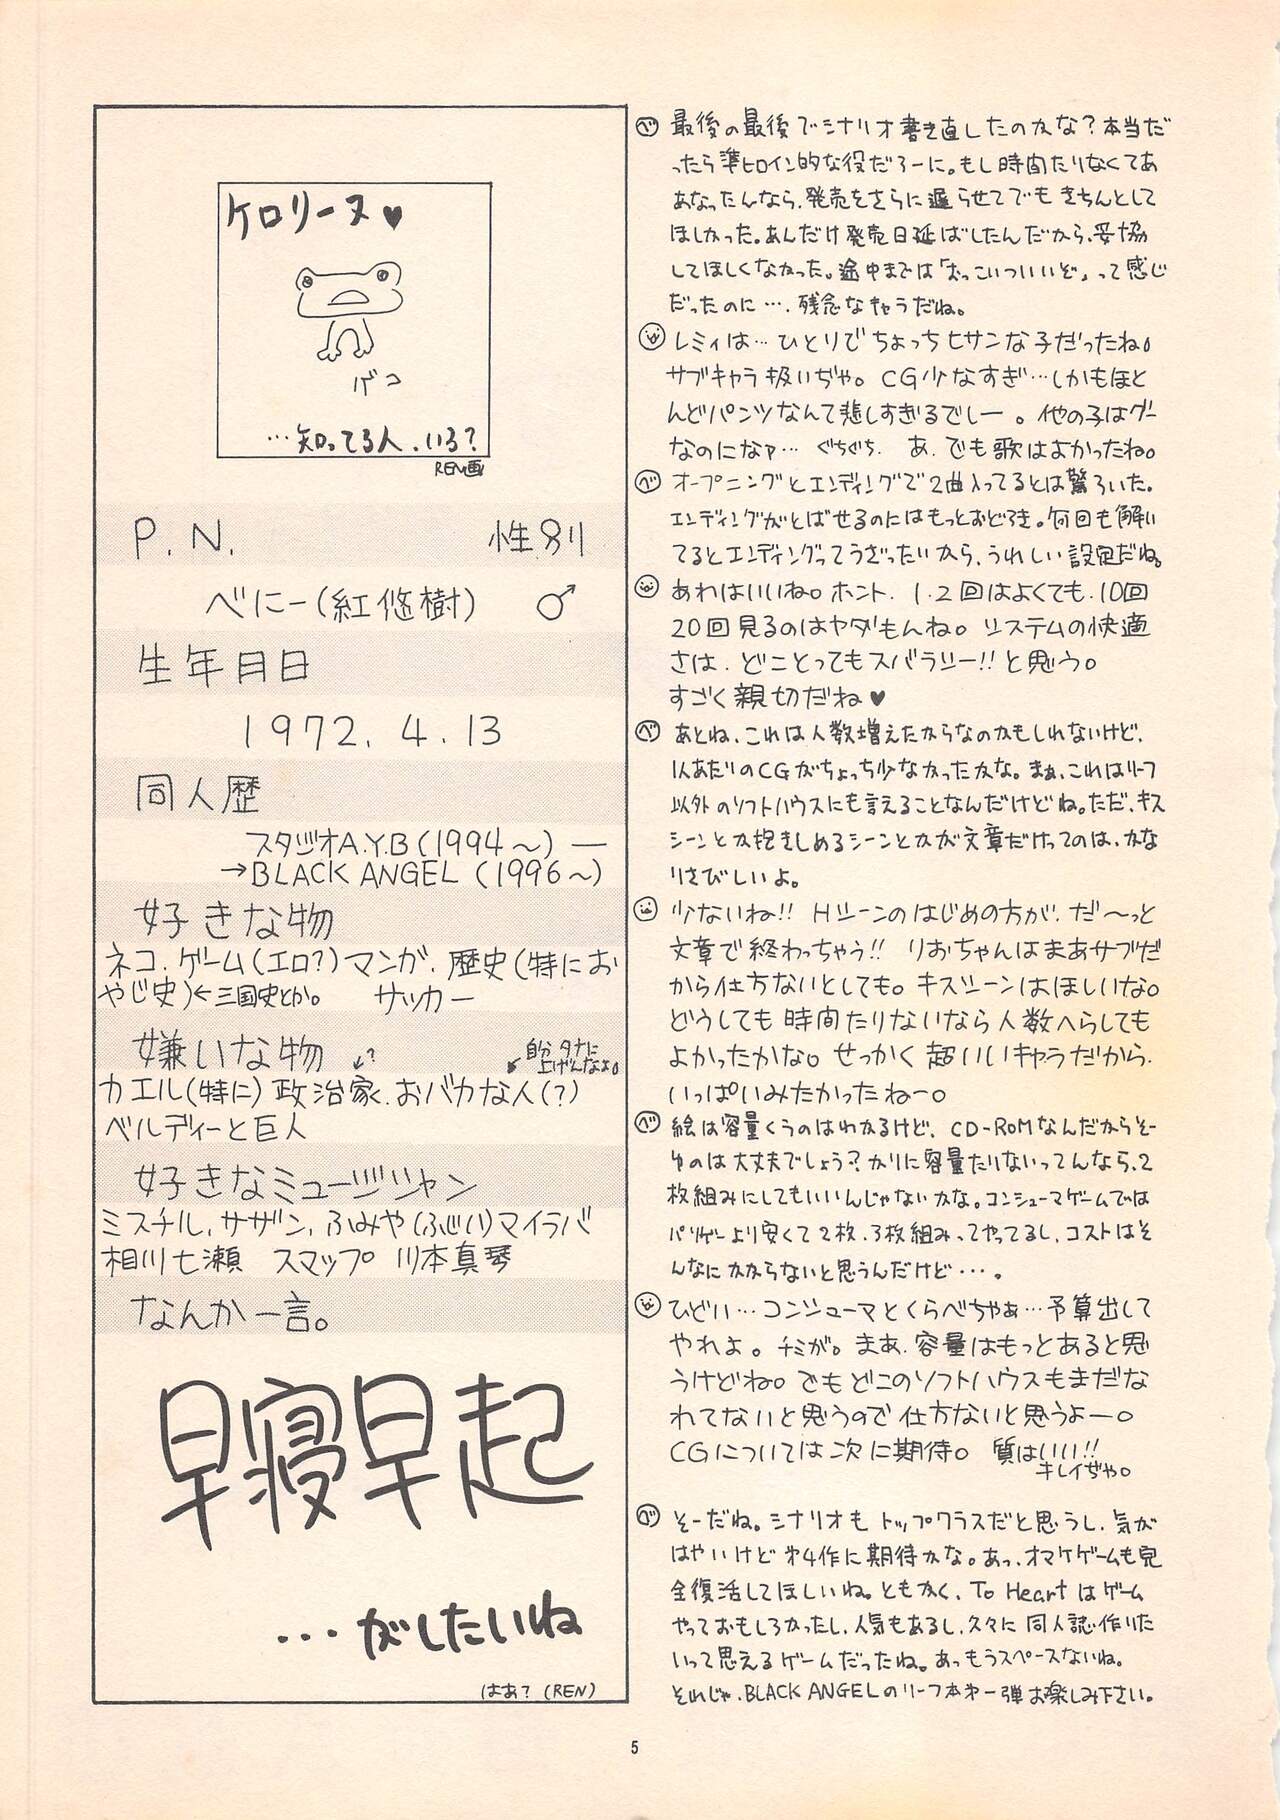 ケロリーヌ♥
ゲコ
…知ってる人、いる?
REN画
P.N. 性別
べにー(紅悠樹) ♂
生年月日
1972. 4. 13
同人歴
スタジオA.Y.B(1994〜)―
→BLACK ANGEL (1996〜)
好きな物
ネコ、ゲーム(エロ?)マンガ、歴史(特にお
やじ史)←三国史とか。 サッカー
嫌いな物 ↙? ↙自分タナに
上げんなよ。
カエル(特に)政治家、おバカな人(?)
ベルディーと巨人
好きなミュージシャン
ミスチル、サザン、ふみや(ふじい)マイラバ
相川七瀬 スマップ 川本真琴
なんか一言。
早寝早起
…がしたいね
はあ?(REN)
べ 最後の最後でシナリオ書き直したのかな?本当だ
ったら準ヒロイン的な役だろーに。もし時間たりなくてあ
あなったんなら、発売をさらに遅らせてでもきちんとして
ほしかった。あんだけ発売日延ばしたんだから、妥協
してほしくなかった。途中までは「おっこいついいぞ」って感じ
だったのに…、残念なキャラだね。
レミィは…ひとりでちょっちヒサンな子だったね。
サブキャラ扱いぢゃ。CG少なすぎ…しかもほと
んどパンツなんて悲しすぎるでしー。他の子はグー
なのになァ… ぐちぐち、 あ、でも歌はよかったね。
べ オープニングとエンディングで2曲入ってるとは驚ろいた。
エンディングがとばせるのにはもっとおどろき。何回も解い
てるとエンディングってうざったいから、うれしい設定だね。
あれはいいね。ホント、1.2回はよくても、10回
20回見るのはヤダもんね。システムの快適
さは、どことってもスバラシー!!と思う。
すごく親切だね♥
べ あとね、これは人数増えたからなのかもしれないけど、
1人あたりのCGがちょっち少なかったかな。まぁ、これはリーフ
以外のソフトハウスにも言えることなんだけどね。ただ、キス
シーンとか抱きしめるシーンとかが文章だけってのは、かな
りさびしいよ。
少ないね!! Hシーンのはじめの方が、だ〜っと
文章で終わっちゃう!! りおちゃんはまあサブだ
から仕方ないとしても。キスシーンはほしいな。
どうしても時間たりないなら人数へらしても
よかったかな。せっかく超いいキャラだから、
いっぱいみたかったねー。
べ 絵は容量くうのはわかるけど、CD-ROMなんだからそー
ゆのは大丈夫でしょう?かりに容量たりないってんなら、2
枚組みにしてもいいんじゃないかな。コンシューマゲームでは
パソゲーより安くて2枚、3枚組みってやってるし、コストはそ
んなにかからないと思うんだけど…。
ひどい…コンシューマとくらべちゃぁ…予算出して
やれよ。チミが。まあ、容量はもっとあると思
うけどね。でもどこのソフトハウスもまだな
れてないと思うので仕方ないと思うよー。
CGについては次に期待。 質はいい!!
キレイぢゃ。
べ そーだね。シナリオもトップクラスだと思うし、気が
はやいけど第4作に期待かな。あっ、オマケゲームも完
全復活してほしいね。ともかく、To Heartはゲーム
やっておもしろかったし、人気もあるし、久々に同人誌作りた
いって思えるゲームだったね。あっもうスペースないね。
それじゃ、BLACK ANGELのリーフ本第一弾お楽しみ下さい。
5